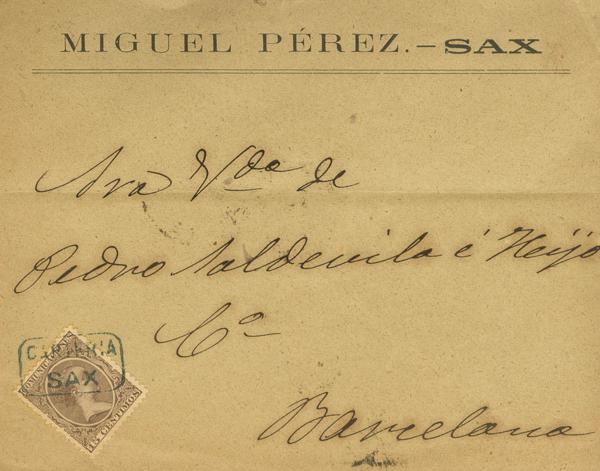 MIGUEL PÉREZ.-SAX
Sra Vda de
Pedro Saldevila é Hijo
Cª
Barcelona
CARTERIA
SAX
COMUNICACIONES
15 CENTIMOS